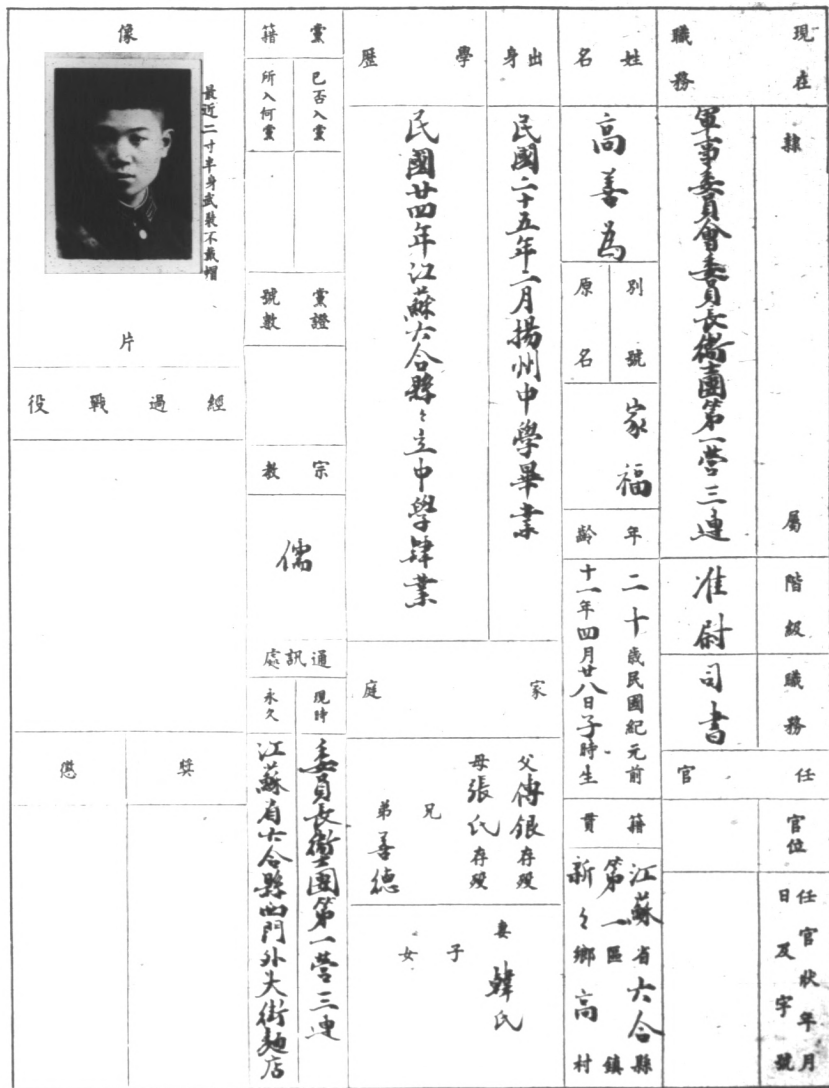 現在職務
隸屬
軍事委員會委員長衛團第一營三連
階級
准尉
職務
司書
任官
官位
任官狀年月日及字號
姓名
高善為
別號
原名
家福
年齡
二十歲民國紀元前
十一年四月廿八日子時生
籍貫
江蘇省六合縣
第一區鎮
新々鄉高村
出身
民國二十五年二月揚州中學畢業
學歷
民國廿四年江蘇六合縣々立中學肄業
家庭
父傳銀存歿
母張氏存歿
兄
弟善德
妻韓氏
子
女
黨籍
已否入黨
所入何黨
黨證
號數
宗教
儒
通訊處
現時
委員長衛士團第一營三連
永久
江蘇省六合縣西門外大街麵店
像
最近二寸半身武裝不戴帽
片
經過戰役
獎
懲